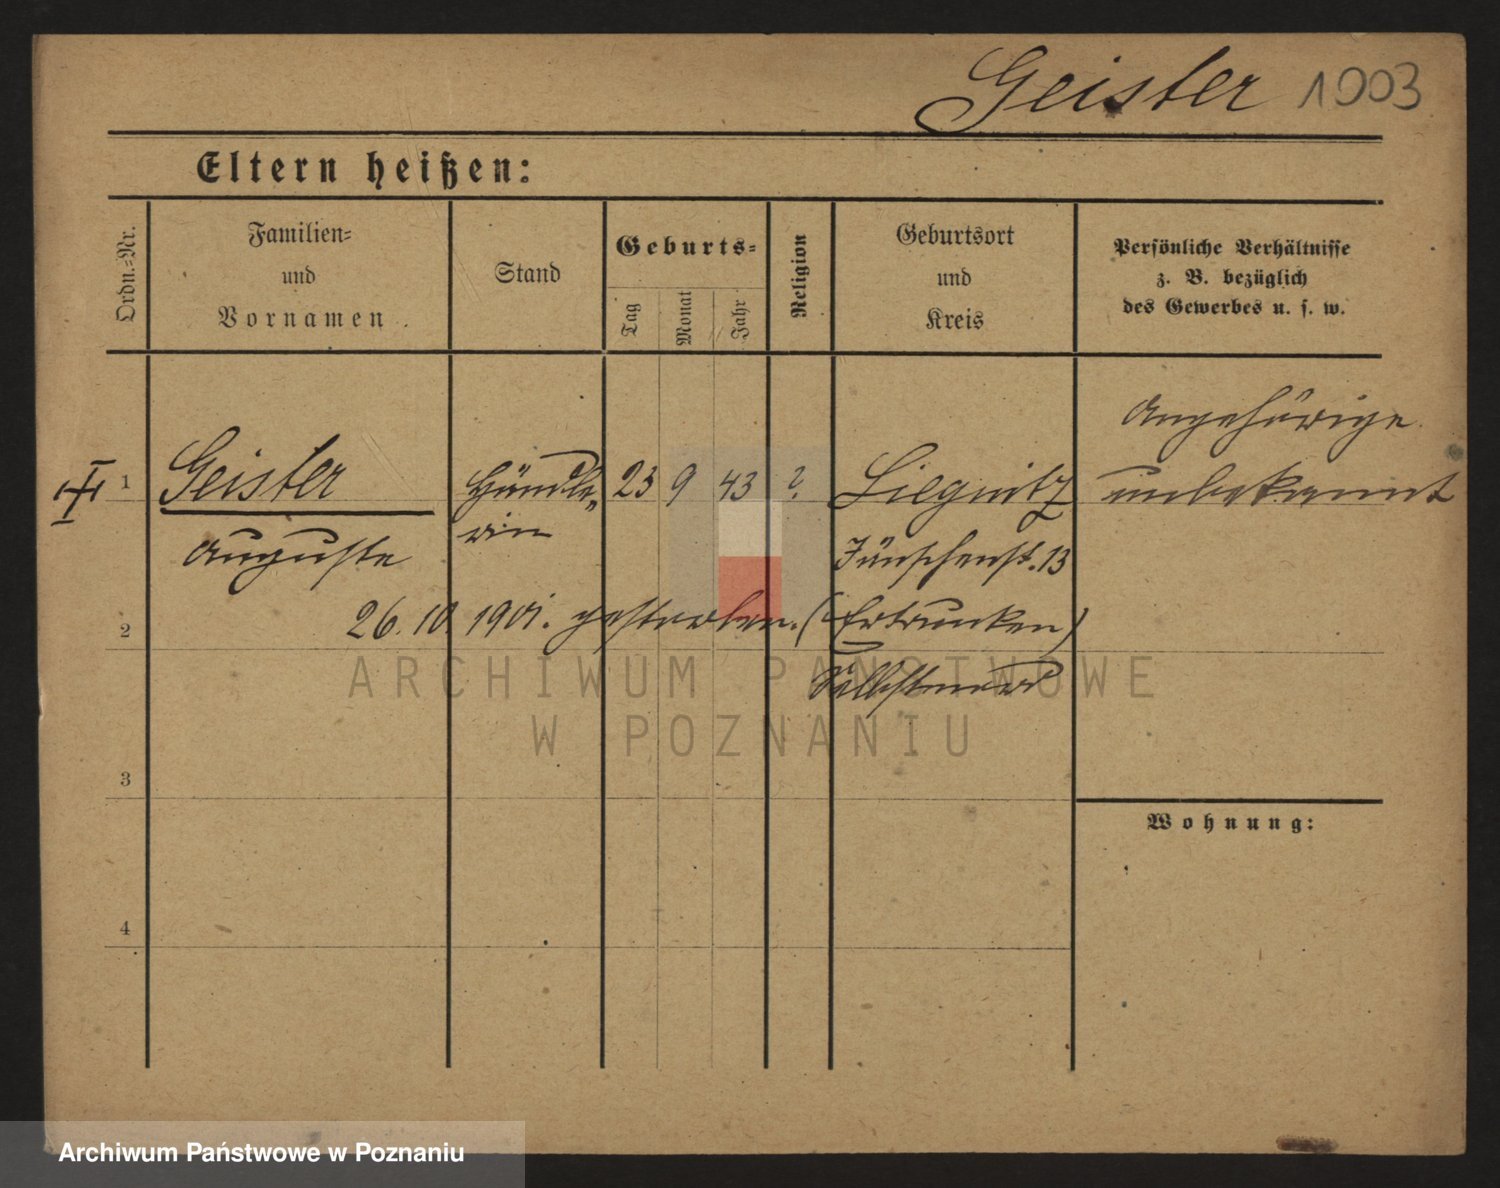 Geister 1003
Eltern heißen:
Ordn.-Nr.
Familien-
und
Vornamen.
Stand
Geburts-
Tag
Monat
Jahr
Religion
Geburtsort
und
Kreis
Persönliche Verhältnisse
z. B. bezüglich
des Gewerbes u. s. w.
Angehörige
1 Geister Händle- 23 9 43 ? Liegnitz unbekannt
Auguste rin 13
2 26. 10. 1901. gestorben. (Ertrunken)
Selbstmord
ARCHIWUM PAŃSTWOWE
W POZNANIU
3
Wohnung:
4
Archiwum Państwowe w Poznaniu